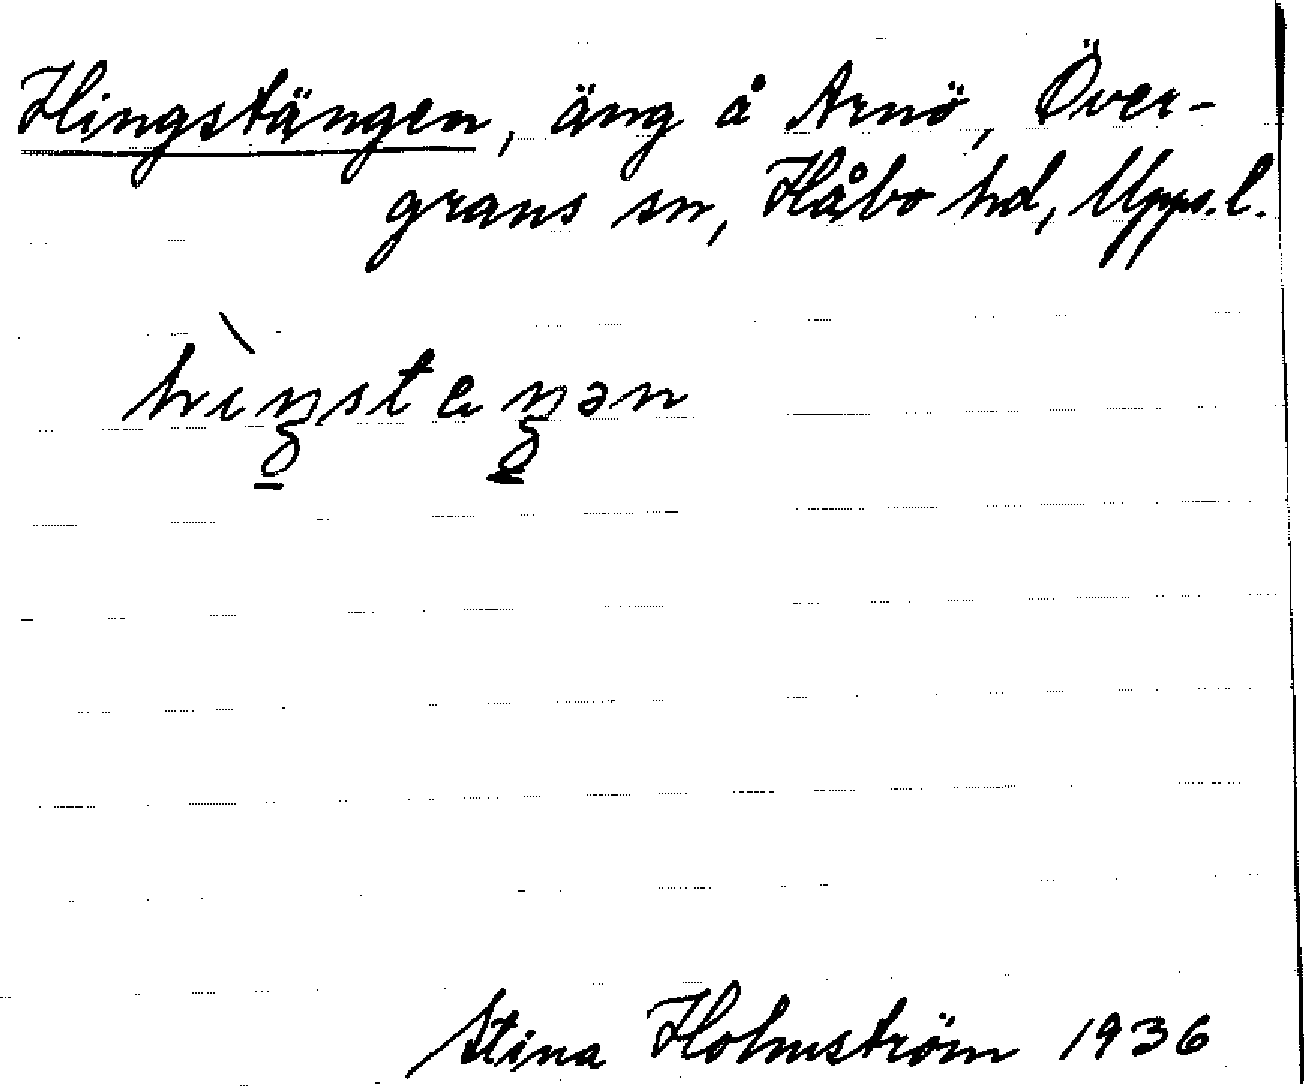 Hingstängen, äng å Arnö, Över-
grans sn, Håbo hd, Upps.l.
hìŋsteŋən
Stina Holmström 1936